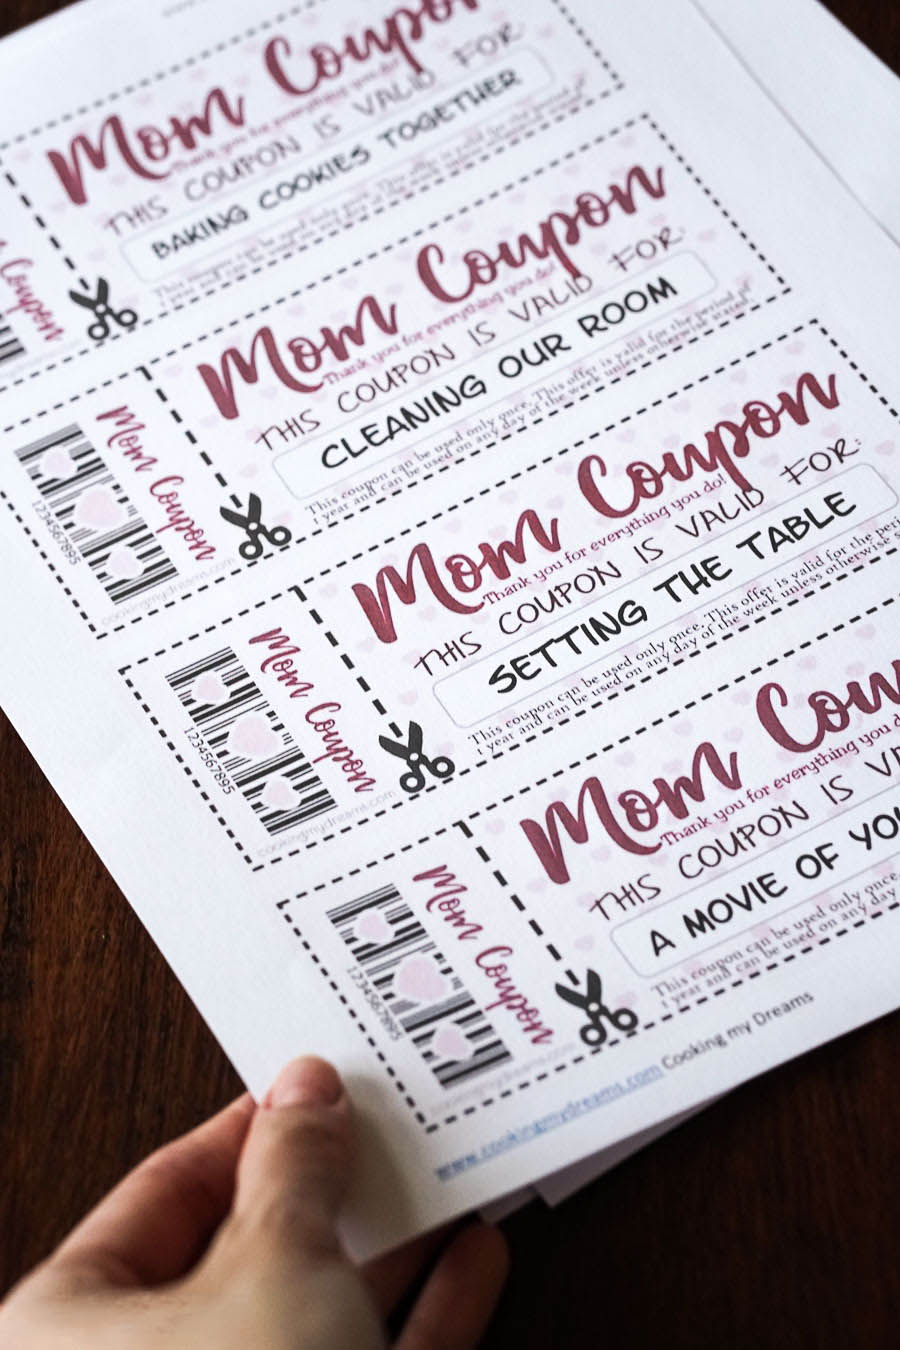 Mom Coupon
Thank you for everything you do!
THIS COUPON IS VALID FOR:
BAKING COOKIES TOGETHER
This coupon can be used only once. This offer is valid for the period of
1 year and can be used on any day of the week unless otherwise stated.
Coupon
Mom Coupon
Thank you for everything you do!
THIS COUPON IS VALID FOR:
CLEANING OUR ROOM
This coupon can be used only once. This offer is valid for the period of
1 year and can be used on any day of the week unless otherwise stated.
Mom Coupon
1234567895
cookingmydreams.com
Mom Coupon
Thank you for everything you do!
THIS COUPON IS VALID FOR:
SETTING THE TABLE
This coupon can be used only once. This offer is valid for the peri
1 year and can be used on any day of the week unless otherwise s
Mom Coupon
1234567895
cookingmydreams.com
Mom Cou
Thank you for everything you d
THIS COUPON IS V
A MOVIE OF YOU
This coupon can be used only once.
1 year and can be used on any day
Mom Coupon
1234567895
cookingmydreams.com
www.cookingmydreams.com Cooking my Dreams